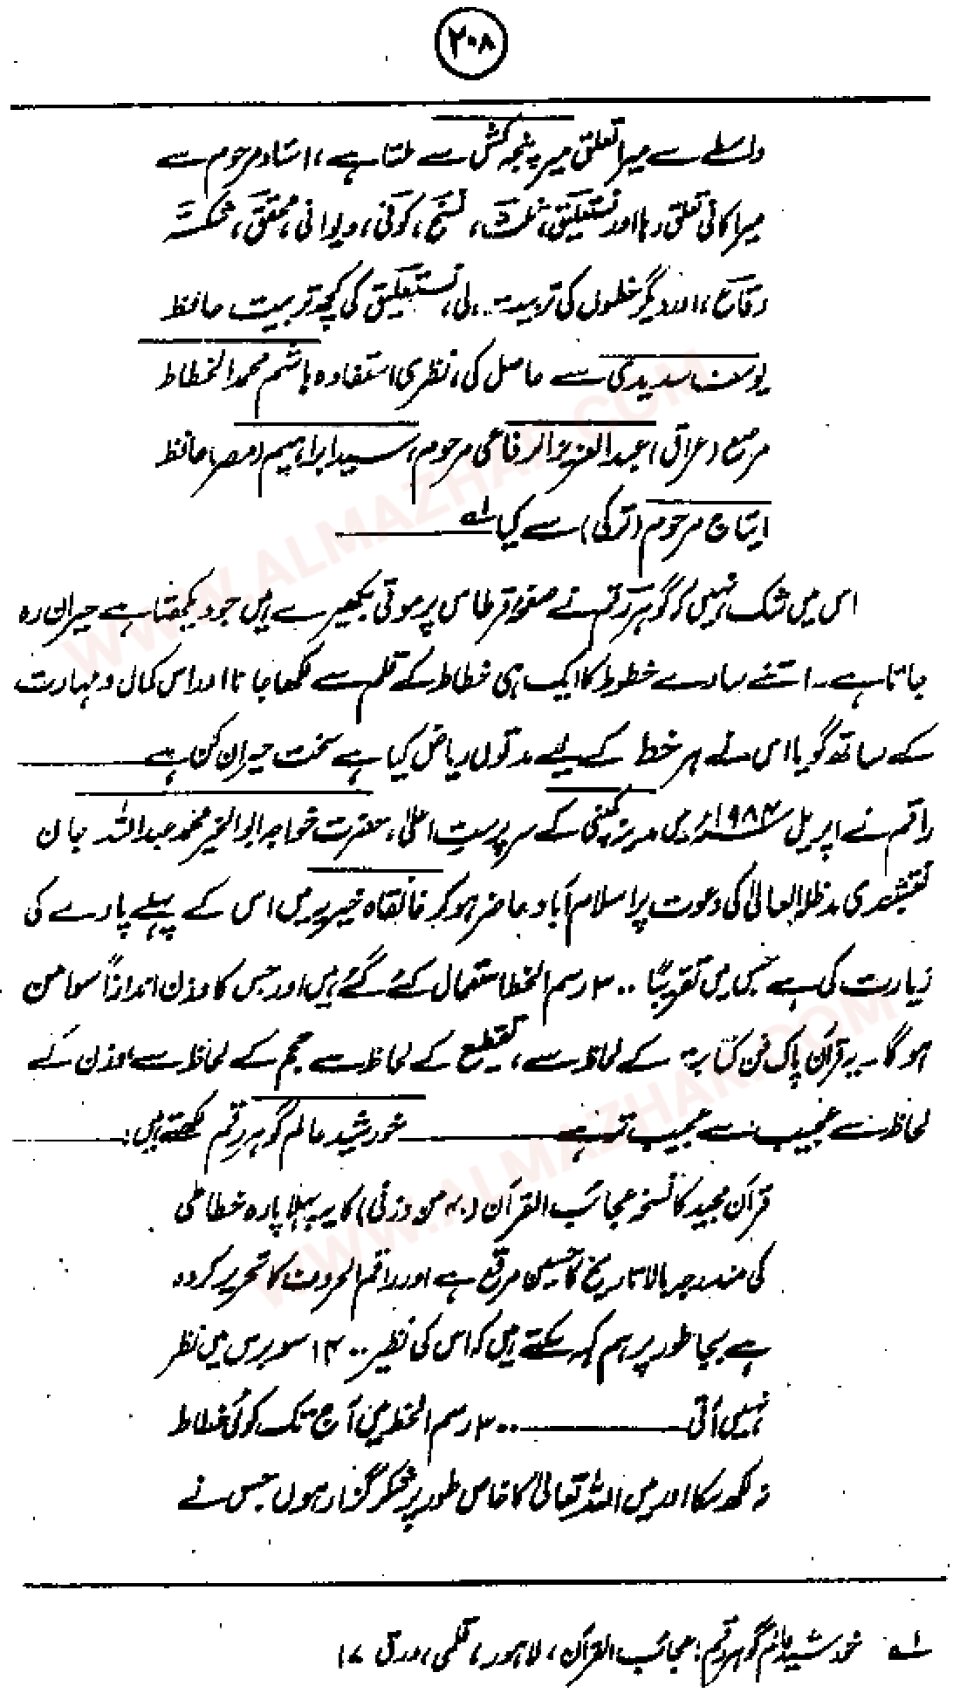 ۲۰۸
واسطے سے میرا تعلق میر پنجہ کش سے ملتا ہے، استاد مرحوم سے
میرا کافی تعلق رہا اور نستعلیق، ثلث، نسخ، کوفی، دیوانی، محقق، شکستہ
رقاع، اور دیگر خطوں کی تربیت لی، نستعلیق کی کچھ تربیت حافظ
یوسف سدیدی سے حاصل کی، نظری استفادہ ہاشم محمد الخطاط
مرصع (عراق) عبد العزیز الرفاعی مرحوم، سید ابراہیم (مصر) حافظ
ایتاج مرحوم (ترکی) سے کیا ۱؎
اس میں شک نہیں کہ گوہر رقم نے صفحہ قرطاس پر موتی بکھیرے ہیں جو دیکھتا ہے حیران رہ
جاتا ہے۔ اتنے سارے خطوط کا ایک ہی خطاط کے قلم سے لکھا جانا اور اس کمال و مہارت
کے ساتھ گویا اس نے ہر خط کے لیے مدتوں ریاض کیا ہے سخت حیران کن ہے
راقم نے اپریل ۱۹۸۴ء میں مدینہ کمپنی کے سرپرستِ اعلیٰ، حضرت خواجہ ابوالخیر محمد عبداللہ جان
نقشبندی مدظلہ العالی کی دعوت پر اسلام آباد حاضر ہو کر خانقاہ خیریہ میں اس کے پہلے پارے کی
زیارت کی ہے جس میں تقریباً ۳۰۰ رسم الخط استعمال کئے گئے ہیں اور جس کا وزن اندازاً سوا من
ہو گا۔ یہ قرآن پاک فن کتابہ کے لحاظ سے، تقطیع کے لحاظ سے حجم کے لحاظ سے، وزن کے
لحاظ سے عجیب سے عجیب تر ہے خورشید عالم گوہر رقم لکھتے ہیں:
قرآن مجید کا نسخہ عجائب القرآن (۴۰ من وزنی) کا یہ پہلا پارہ خطاطی
کی مندرجہ بالا تاریخ کا حسین مرقع ہے اور راقم الحروف کا تحریر کردہ
ہے بجا طور پر ہم کہہ سکتے ہیں کہ اس کی نظیر ۱۴۰۰ سو برس میں نظر
نہیں آتی ۳۰۰ رسم الخط میں آج تک کوئی خطاط
نہ لکھ سکا اور میں اللہ تعالیٰ کا خاص طور پر شکر گزار ہوں جس نے
۱؎ خورشید عالم گوہر رقم: عجائب القرآن، لاہور، قلمی، ورق ۱۷
WWW.ALMAZHAR.COM
WWW.ALMAZHAR.COM